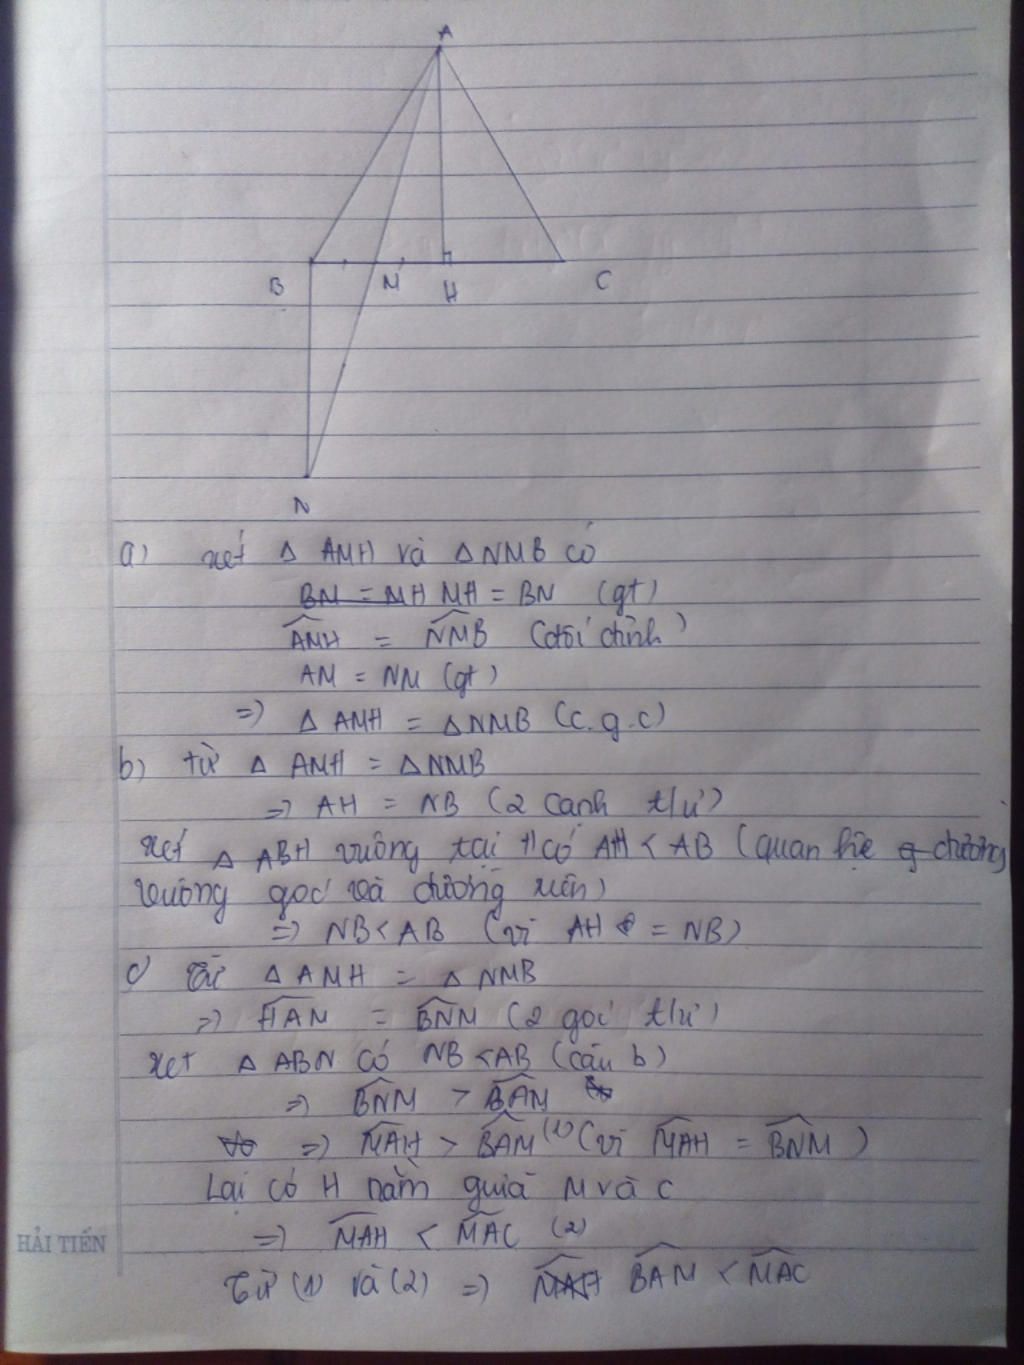 A
B M H C
N
a) xét Δ AMH và Δ NMB có
BM = MH MH = BM (gt)
AMH = NMB (đối đỉnh)
AM = NM (gt)
=) Δ AMH = Δ NMB (c.g.c)
b) từ Δ AMH = Δ NMB
=) AH = NB (2 cạnh t/ư)
xét Δ ABH vuông tại H có AH < AB (quan hệ đường
vuông góc và đường xiên)
=) NB < AB (vì AH = NB)
c) Từ Δ AMH = Δ NMB
=) HAM = BNM (2 góc t/ư)
xét Δ ABN có NB < AB (câu b)
=) BNM > BAM
=) MAH > BAM (1) (vì MAH = BNM)
Lại có H nằm giữa M và C
=) MAH < MAC (2)
HẢI TIẾN
Từ (1) và (2) =) BAM < MAC